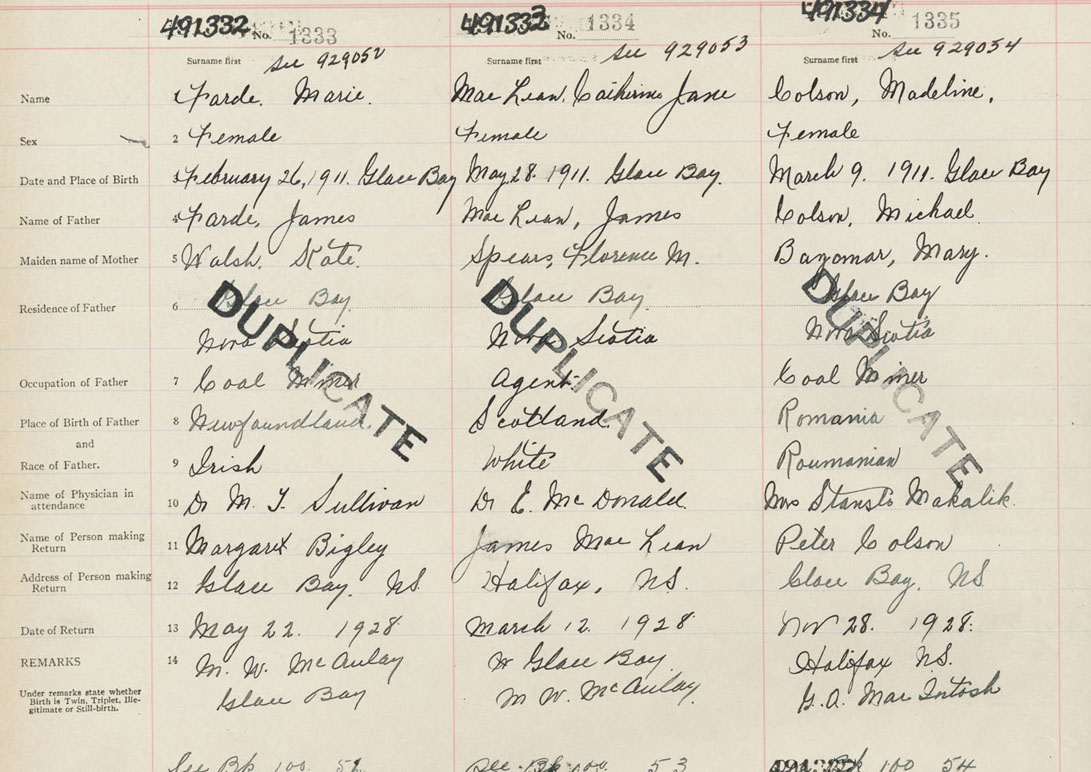 491332 No. 1333
491333 No. 1334
491334 No. 1335
Surname first See 929052
Surname first See 929053
Surname first See 929054
Name 1 Farde, Marie.
Mac Lean, Catherine Jane
Colson, Madeline,
Sex 2 Female
Female
Female
Date and Place of Birth 3 February 26, 1911. Glace Bay
May 28. 1911. Glace Bay.
March 9. 1911. Glace Bay
Name of Father 4 Farde, James
Mac Lean, James
Colson, Michael
Maiden name of Mother 5 Walsh, Kate.
Spears, Florence M.
Bazomar, Mary.
Residence of Father 6 Glace Bay
Glace Bay
Glace Bay
Nova Scotia
Nova Scotia
Nova Scotia
DUPLICATE
DUPLICATE
DUPLICATE
Occupation of Father 7 Coal Miner
Agent.
Coal Miner
Place of Birth of Father 8 Newfoundland.
Scotland.
Romania
and
Race of Father. 9 Irish
White
Roumanian
Name of Physician in
attendance 10 Dr M. T. Sullivan
Dr E. McDonald
Mrs Makalik.
Name of Person making
Return 11 Margaret Bigley
James Mac Lean
Peter Colson
Address of Person making
Return 12 Glace Bay. NS
Halifax, NS.
Glace Bay, NS
Date of Return 13 May 22. 1928
March 12. 1928
Nov 28. 1928.
REMARKS 14 M. W. McAulay
Glace Bay
Halifax NS.
Under remarks state whether
Birth is Twin, Triplet, Ille-
gitimate or Still-birth.
Glace Bay
M W. McAulay.
G. A. MacIntosh
See Bk 100. 52
See Bk 100. 53
Bk 100 54